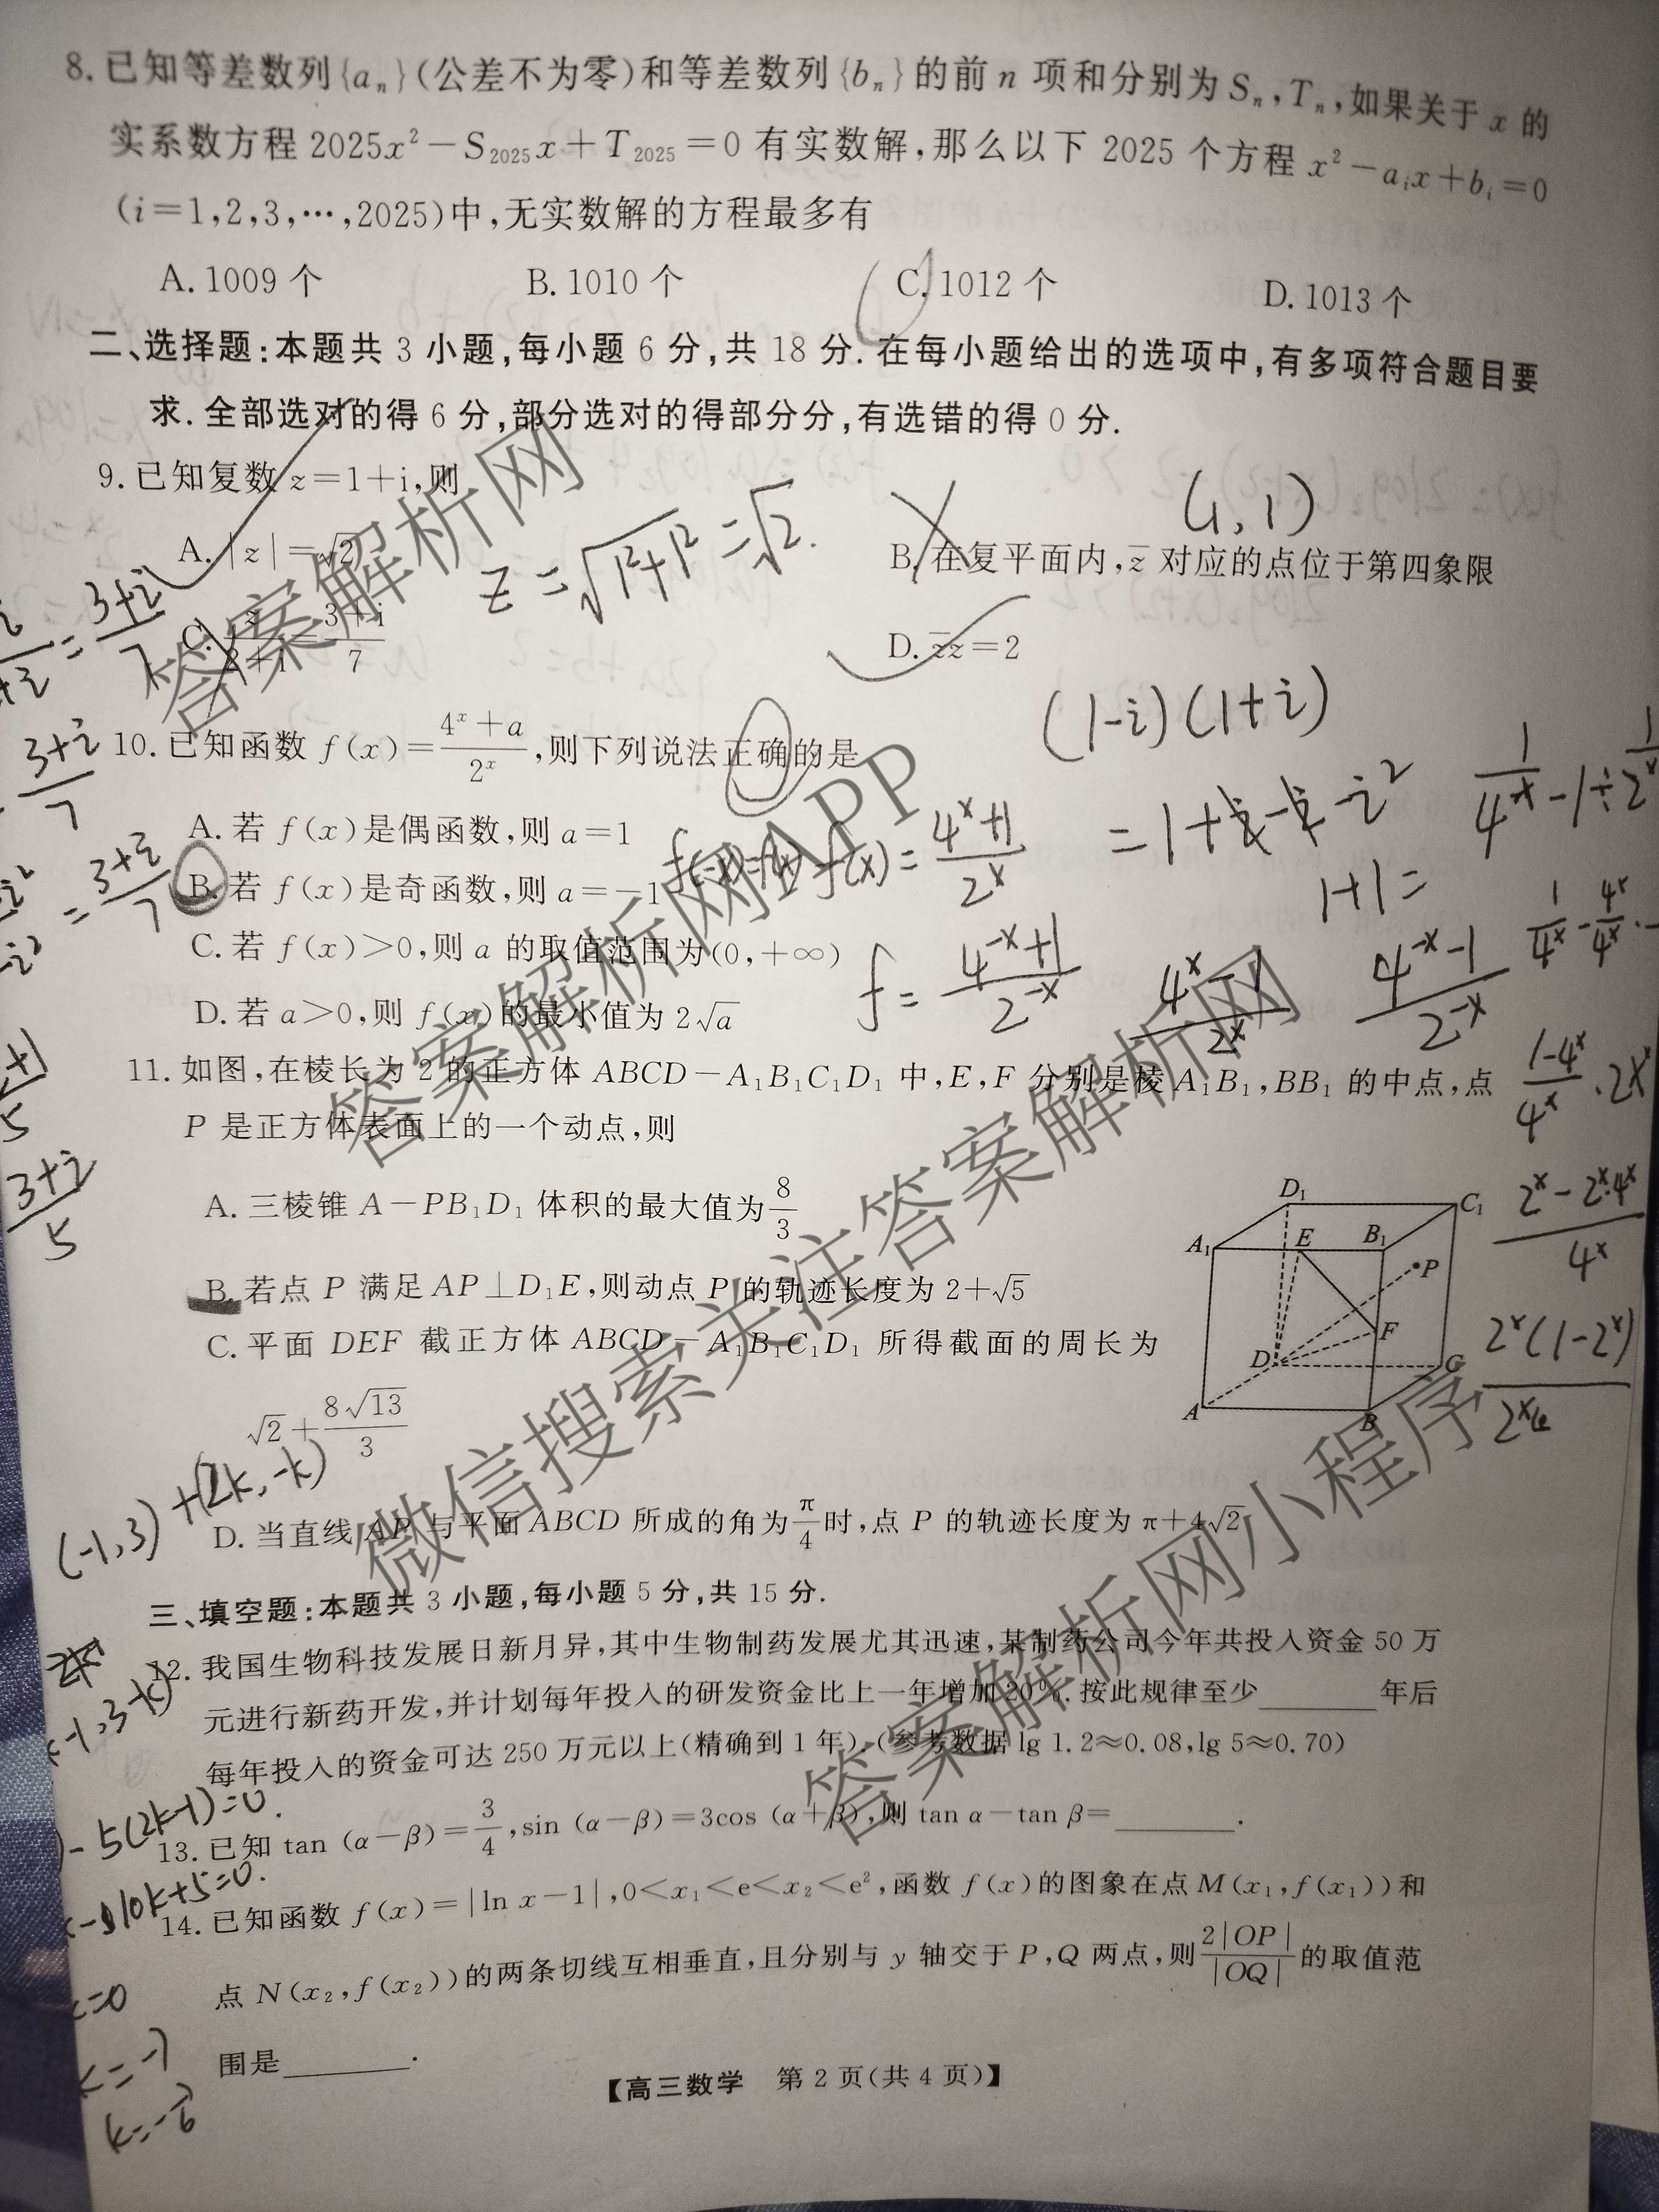 8. 已知等差数列{aₙ}(公差不为零)和等差数列{bₙ}的前 n 项和分别为 Sₙ,Tₙ,如果关于 x 的
实系数方程 2025x²－S₂₀₂₅x＋T₂₀₂₅＝0 有实数解,那么以下 2025 个方程 x²－aᵢx＋bᵢ＝0
(i＝1,2,3,…,2025)中,无实数解的方程最多有
A. 1009 个 B. 1010 个 C. 1012 个 D. 1013 个
二、选择题:本题共 3 小题,每小题 6 分,共 18 分. 在每小题给出的选项中,有多项符合题目要
求. 全部选对的得 6 分,部分选对的得部分分,有选错的得 0 分.
9. 已知复数 z＝1＋i,则
(1,1)
A. |z|＝√2 z=√1²+1²=√2. B. 在复平面内,z̄ 对应的点位于第四象限
C. z/(2＋i)＝(3＋i)/7 D. z̄z＝2
(1-i)(1+i)
10. 已知函数 f(x)＝(4ˣ＋a)/2ˣ,则下列说法正确的是
A. 若 f(x)是偶函数,则 a＝1
B. 若 f(x)是奇函数,则 a＝－1
C. 若 f(x)＞0,则 a 的取值范围为(0,＋∞)
D. 若 a＞0,则 f(x)的最小值为 2√a
11. 如图,在棱长为 2 的正方体 ABCD－A₁B₁C₁D₁ 中,E,F 分别是棱 A₁B₁,BB₁ 的中点,点
P 是正方体表面上的一个动点,则
A. 三棱锥 A－PB₁D₁ 体积的最大值为 8/3
B. 若点 P 满足 AP⊥D₁E,则动点 P 的轨迹长度为 2＋√5
C. 平面 DEF 截正方体 ABCD－A₁B₁C₁D₁ 所得截面的周长为
√2＋8√13/3
D₁ C₁
A₁ E B₁
P
F
D C
A B
(-1,3)+(2k,-k)
D. 当直线 AP 与平面 ABCD 所成的角为 π/4 时,点 P 的轨迹长度为 π＋4√2
三、填空题:本题共 3 小题,每小题 5 分,共 15 分.
12. 我国生物科技发展日新月异,其中生物制药发展尤其迅速,某制药公司今年共投入资金 50 万
元进行新药开发,并计划每年投入的研发资金比上一年增加 20%. 按此规律至少______年后
每年投入的资金可达 250 万元以上(精确到 1 年).(参考数据 lg 1.2≈0.08,lg 5≈0.70)
13. 已知 tan (α－β)＝3/4,sin (α－β)＝3cos (α＋β),则 tan α－tan β＝______.
14. 已知函数 f(x)＝|ln x－1|,0＜x₁＜e＜x₂＜e²,函数 f(x)的图象在点 M(x₁,f(x₁))和
点 N(x₂,f(x₂))的两条切线互相垂直,且分别与 y 轴交于 P,Q 两点,则 2|OP|/|OQ| 的取值范
围是______.
【高三数学 第 2 页(共 4 页)】
答案解析网
答案解析网APP
微信搜索关注答案解析网
答案解析网小程序